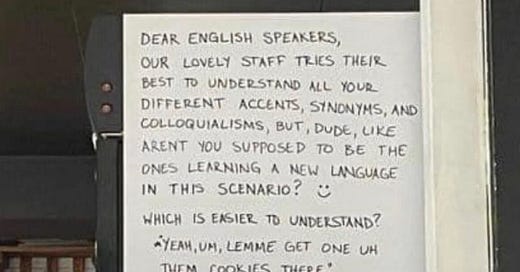 DEAR ENGLISH SPEAKERS,
OUR LOVELY STAFF TRIES THEIR
BEST TO UNDERSTAND ALL YOUR
DIFFERENT ACCENTS, SYNONYMS, AND
COLLOQUIALISMS, BUT, DUDE, LIKE
ARENT YOU SUPPOSED TO BE THE
ONES LEARNING A NEW LANGUAGE
IN THIS SCENARIO? :)
WHICH IS EASIER TO UNDERSTAND?
"YEAH, UM, LEMME GET ONE UH
THEM COOKIES THERE"